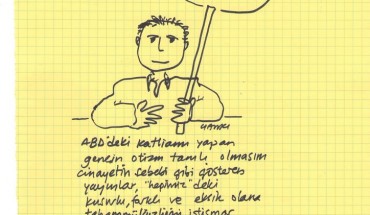 ABD'deki katliamı yapan
gencin otizm tanılı olmasını
cinayetin sebebi gibi gösteren
yayınlar, "hepimiz"deki
kusurlu, farklı ve eksik olana
tahammülsüzlüğün istismar